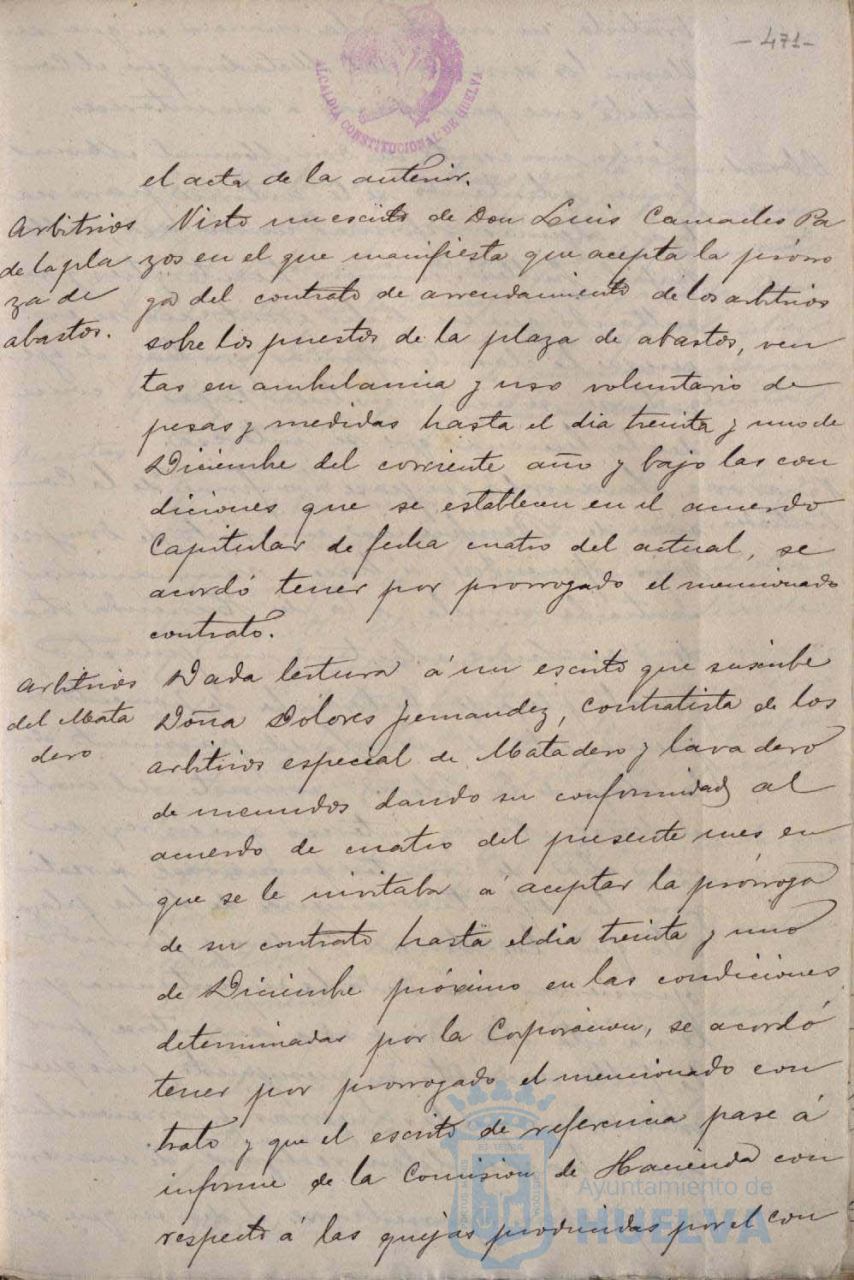 - 471 -
ALCALDIA CONSTITUCIONAL DE HUELVA
el acta de la anterior.
Arbitrios
de la pla
za de
abastos.
Visto un escrito de Don Luis Camacho Pa
zos en el que manifiesta que acepta la prórro
ga del contrato de arrendamiento de los arbitrios
sobre los puestos de la plaza de abastos, ven
tas en ambulancia y uso voluntario de
pesas y medidas hasta el dia treinta y uno de
Diciembre del corriente año y bajo las con
diciones que se establecen en el acuerdo
Capitular de fecha cuatro del actual, se
acordó tener por prorrogado el mencionado
contrato.
Arbitrios
del Mata
dero
Dada lectura á un escrito que suscribe
Doña Dolores Fernandez, contratista de los
arbitrios especial de Matadero y lavadero
de menudos dando su conformidad al
acuerdo de cuatro del presente mes en
que se le invitaba á aceptar la prórroga
de su contrato hasta el dia treinta y uno
de Diciembre próximo en las condiciones
determinadas por la Corporacion, se acordó
tener por prorrogado el mencionado con
trato y que el escrito de referencia pase á
informe de la Comision de Hacienda con
respecto á las quejas producidas por el con
Ayuntamiento de
HUELVA